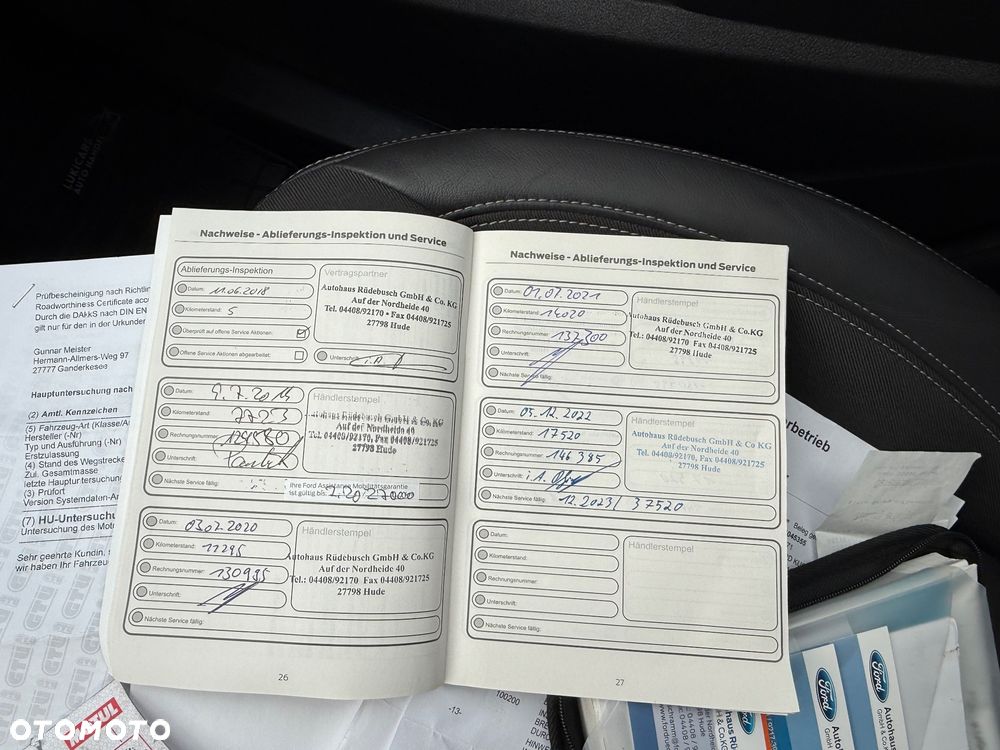 LUKICARS
AUTO HANDEL
Prüfbescheinigung nach Richtlin
Roadworthiness Certificate acco
Durch die DAkkS nach DIN EN
gilt nur für den in der Urkunden
Gunnar Meister
Hermann-Allmers-Weg 97
27777 Ganderkesee
Hauptuntersuchung nach
(2) Amtl. Kennzeichen
(5) Fahrzeug-Art (Klasse/A
Hersteller (-Nr)
Typ und Ausführung (-Nr)
Erstzulassung
(4) Stand des Wegstrecke
Zul. Gesamtmasse
letzte Hauptuntersuchung
(3) Prüfort
Version Systemdaten-A
(7) HU-Untersuchu
Untersuchung des Mot
Sehr geehrte Kundin, s
wir haben Ihr Fahrzeug
GTÜ
Nachweise - Ablieferungs-Inspektion und Service
Ablieferungs-Inspektion
Datum: 11.06.2018
Kilometerstand: 5
Überprüft auf offene Service Aktionen:
Offene Service Aktionen abgearbeitet:
Vertragspartner
Autohaus Rüdebusch GmbH & Co. KG
Auf der Nordheide 40
Tel. 04408/92170 • Fax 04408/921725
27798 Hude
Unterschrift: i.A.
Datum: 9.7.2019
Kilometerstand: 7723
Rechnungsnummer:
Unterschrift:
Nächste Service fällig:
Händlerstempel
Autohaus Rüdebusch GmbH & Co.KG
Auf der Nordheide 40
Tel. 04408/92170, Fax 04408/921725
27798 Hude
Ihre Ford Assistance Mobilitätsgarantie
ist gültig bis:
Datum: 03.07.2020
Kilometerstand: 11295
Rechnungsnummer: 130985
Unterschrift:
Nächste Service fällig:
Händlerstempel
Autohaus Rüdebusch GmbH & Co.KG
Auf der Nordheide 40
Tel.: 04408/92170 Fax 04408/921725
27798 Hude
26
Nachweise - Ablieferungs-Inspektion und Service
Datum: 01.07.2021
Kilometerstand: 14020
Rechnungsnummer: 137500
Unterschrift:
Nächste Service fällig:
Händlerstempel
Autohaus Rüdebusch GmbH & Co.KG
Auf der Nordheide 40
Tel.: 04408/92170 Fax 04408/921725
27798 Hude
Datum: 05.12.2022
Kilometerstand: 17520
Rechnungsnummer: 146385
Unterschrift: i.A.
Nächste Service fällig: 12.2023 / 37520
Händlerstempel
Autohaus Rüdebusch GmbH & Co KG
Auf der Nordheide 40
Tel. 04408/92170, Fax 04408/921725
27798 Hude
Datum:
Kilometerstand:
Rechnungsnummer:
Unterschrift:
Nächste Service fällig:
Händlerstempel
27
rbetrieb
-13-
100200
Ford
Ford
OTOMOTO